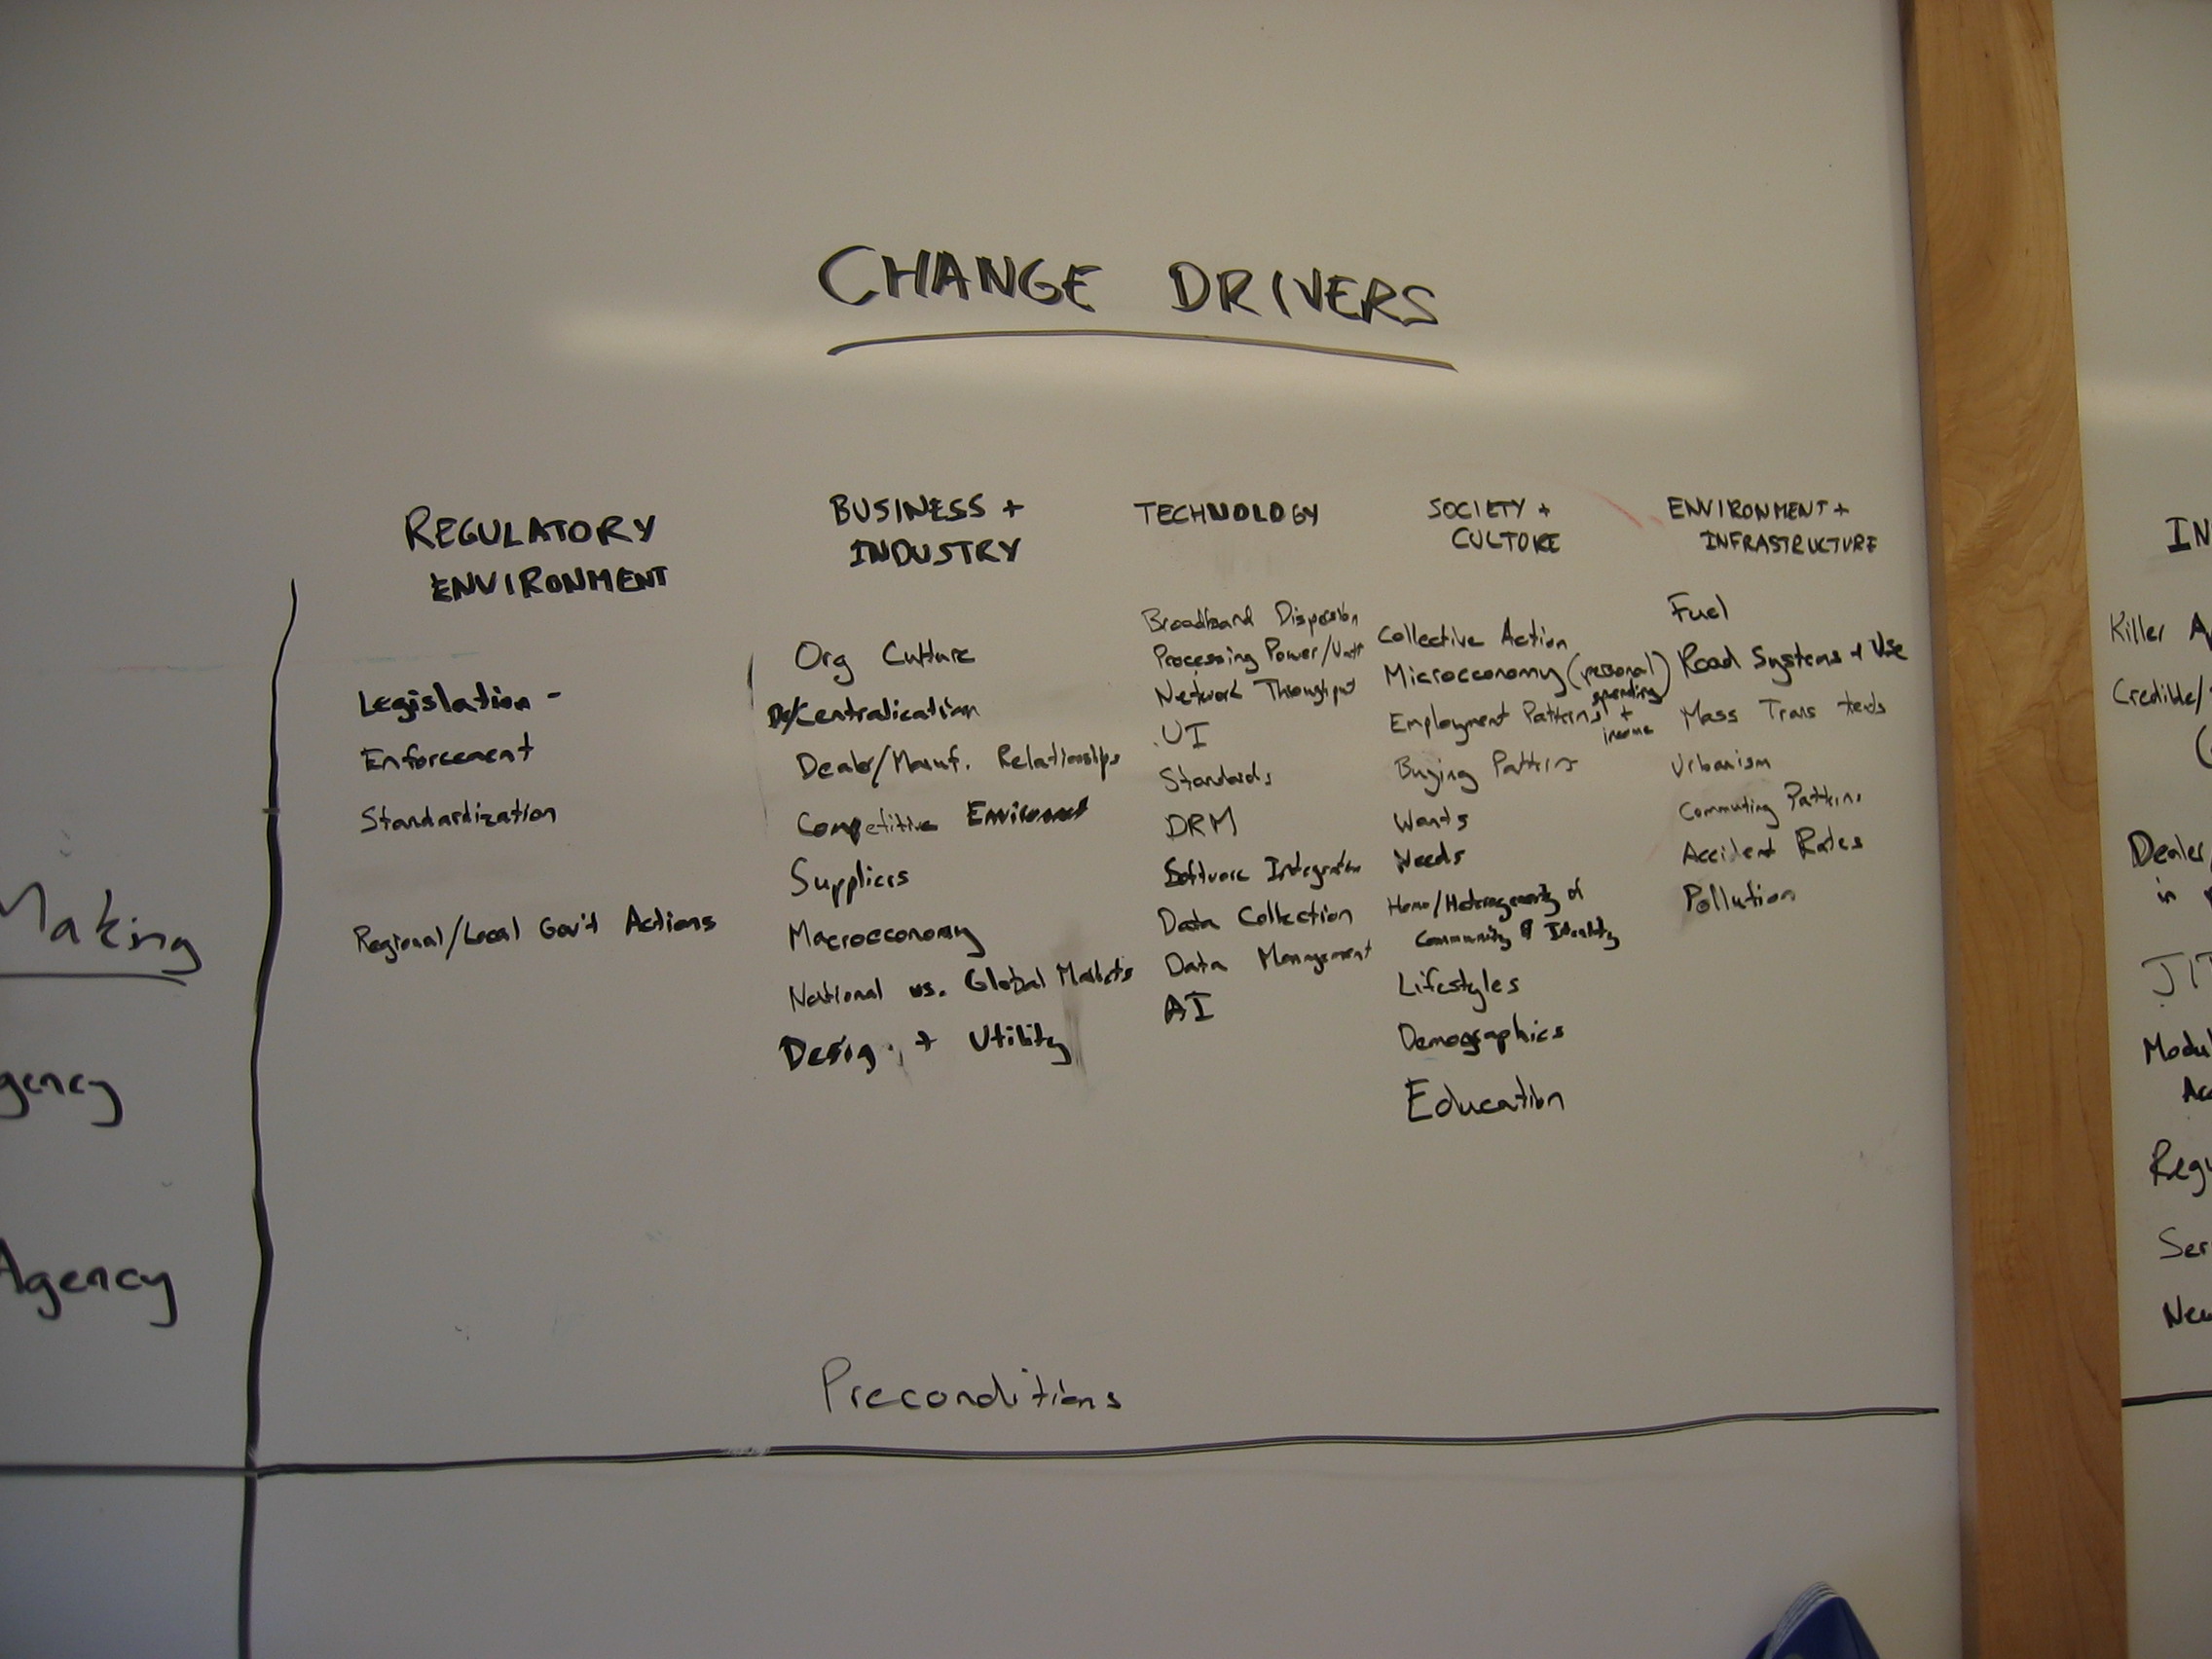 CHANGE DRIVERS
REGULATORY
ENVIRONMENT
Legislation -
Enforcement
Standardization
Regional/Local Gov't Actions
BUSINESS +
INDUSTRY
Org Culture
De/Centralization
Dealer/Manuf. Relationships
Competitive Environment
Suppliers
Macroeconomy
National vs. Global Markets
Design + Utility
TECHNOLOGY
Broadband Dispersion
Processing Power/Watt
Network Throughput
UI
Standards
DRM
Software Integration
Data Collection
Data Management
AI
SOCIETY +
CULTURE
Collective Action
Microeconomy (personal
spending
+
income
Employment Patterns
Buying Patterns
Wants
Needs
Homo/Heterogeneity of
Community & Identity
Lifestyles
Demographics
Education
ENVIRONMENT +
INFRASTRUCTURE
Fuel
Road Systems + Use
Mass Trans
Urbanism
Commuting Patterns
Accident Rates
Pollution
Preconditions
Making
gency
Agency
IN
Killer A
Credible/
Dealer/
in
JIT
Modul
Ac
Regu
Ser
New